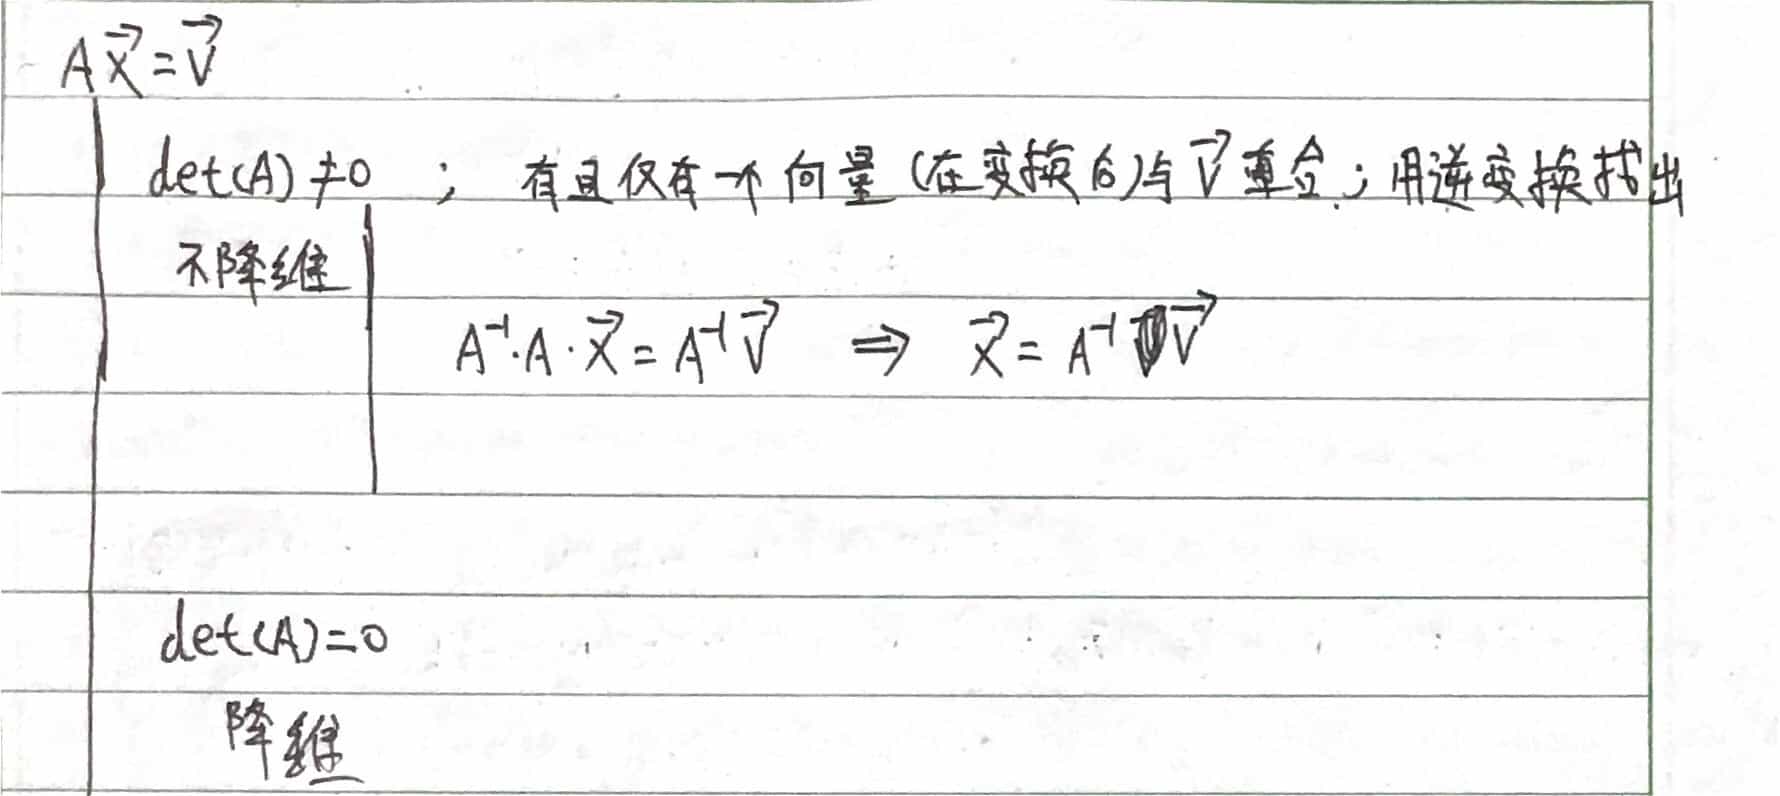 A x⃗ = v⃗
det(A) ≠ 0 ; 有且仅有一个向量(在变换后)与 v⃗ 重合；用逆变换找出
不降维
A⁻¹·A·x⃗ = A⁻¹ v⃗ ⇒ x⃗ = A⁻¹ v⃗
det(A)=0
降维